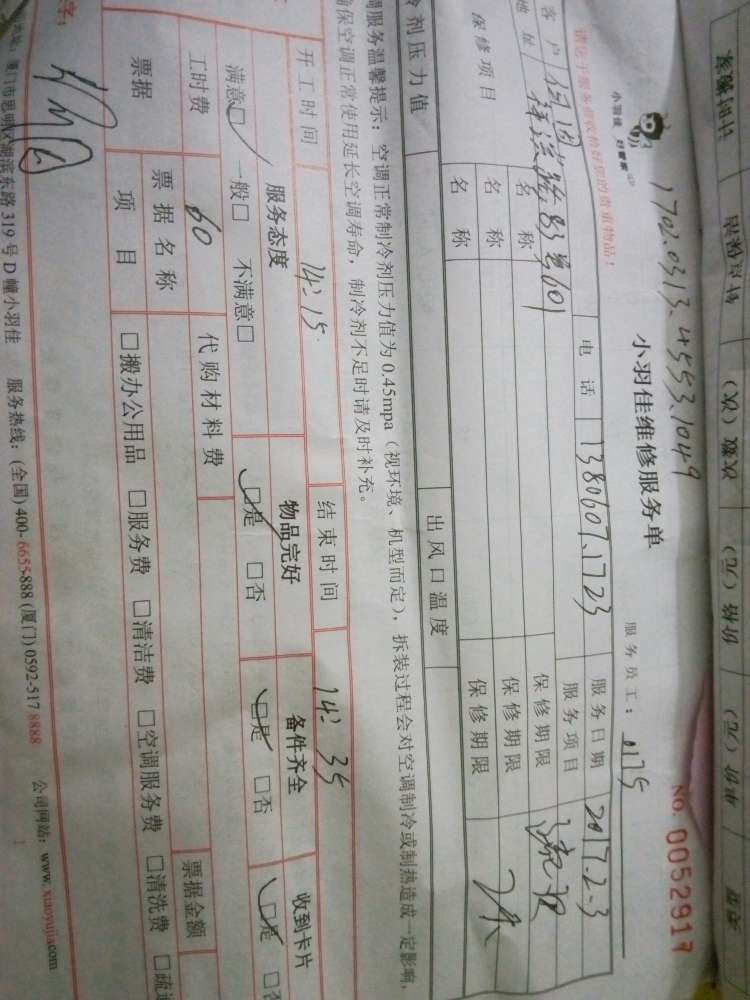 1702.0313.4553.1049
小羽佳 好管家
小羽佳维修服务单
NO. 0052917
服务员工：0175
请您于服务前收拾好您的贵重物品！
客户
电话 1380607.1723
服务日期 2017.2-3
地址 83号601
服务项目
保修项目
名称
保修期限
名称
保修期限
名称
保修期限
冷剂压力值
出风口温度
调服务温馨提示：空调正常制冷剂压力值为0.45mpa（视环境、机型而定），拆装过程会对空调制冷或制热造成一定影响，
确保空调正常使用延长空调寿命，制冷剂不足时请及时补充。
开工时间 14:15
结束时间 14:35
服务态度
物品完好
备件齐全
收到卡片
满意□ 一般□ 不满意□
□是 □否
□是 □否
□是 □否
工时费 60
代购材料费
票据
票据名称
票据金额
项目
□搬办公用品 □服务费 □清洁费 □空调服务费 □清洗费 □疏通
字：
厦门市思明区湖滨东路319号D幢小羽佳 服务热线：(全国) 400-6655-888 (厦门) 0592-5178888 公司网站：www.xiaoyujia.com
计时搬家
补贞货品
次数（次）
价格（元）
单价（元）